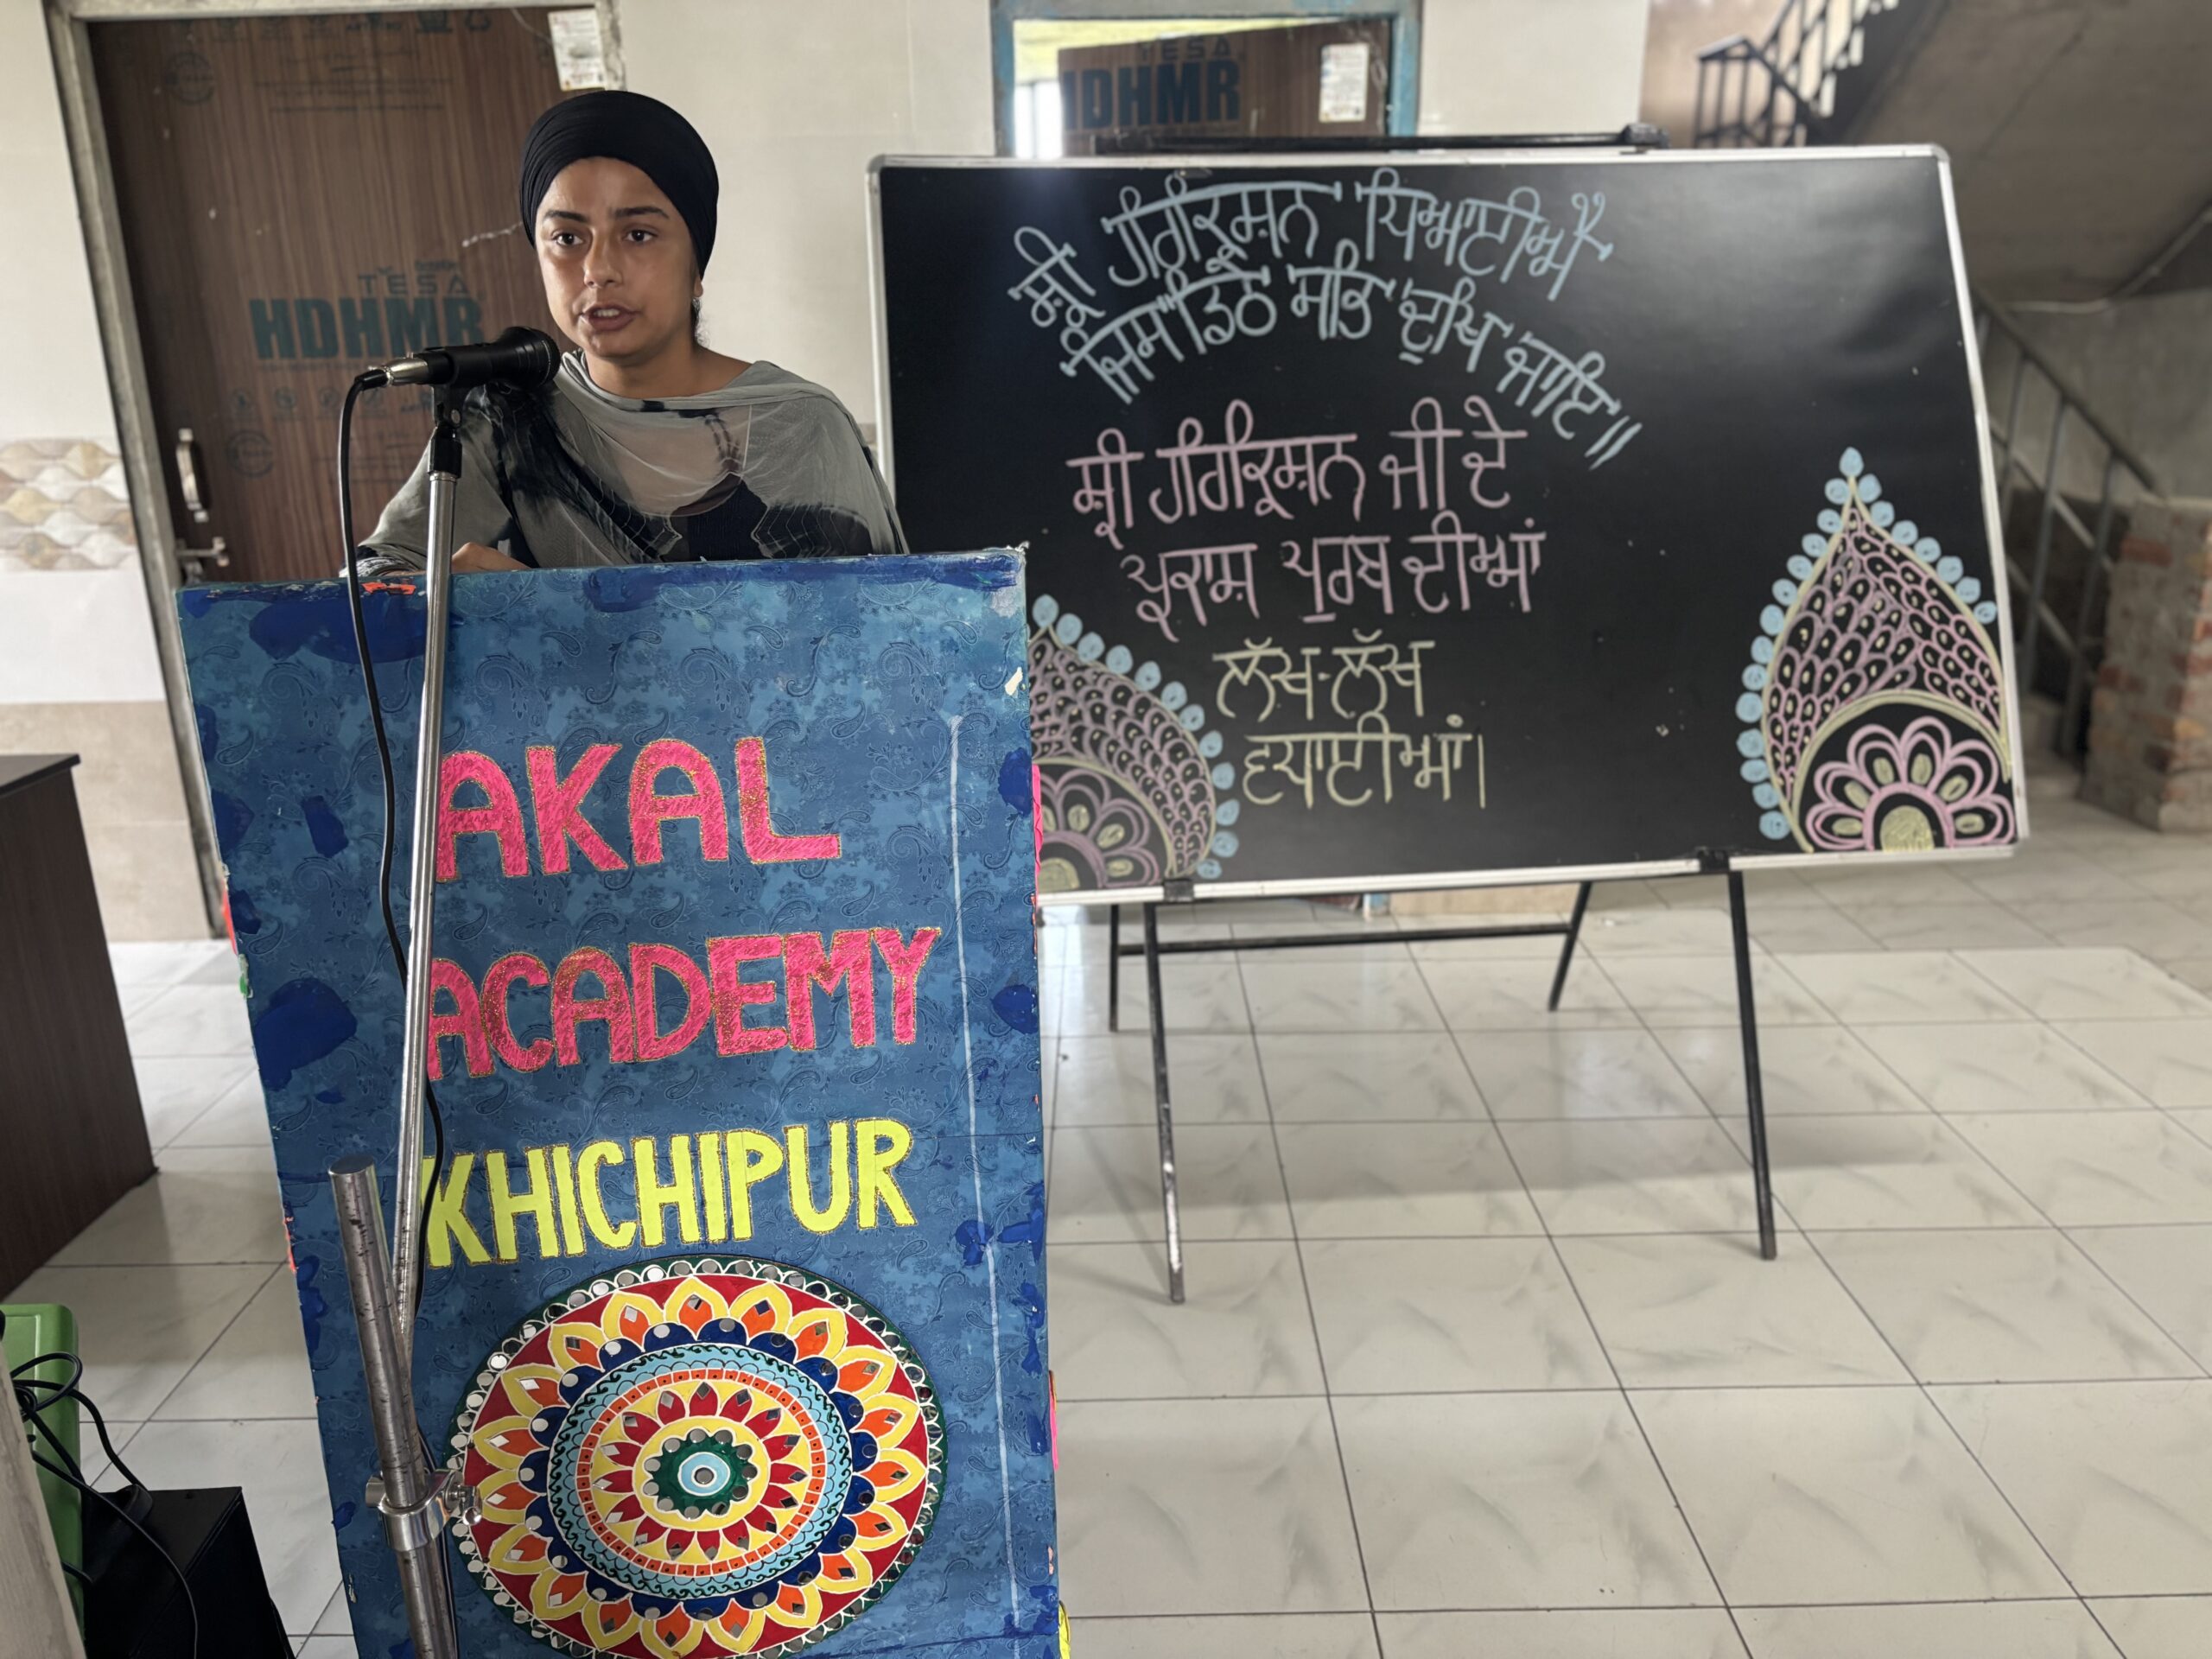 TESA
HDHMR
TESA
HDHMR
ਸ਼੍ਰੀ ਹਰਿਕ੍ਰਿਸ਼ਨ ਧਿਆਈਐ
ਜਿਸ ਡਿਠੈ ਸਭਿ ਦੁਖਿ ਜਾਇ॥
ਸ਼੍ਰੀ ਹਰਿਕ੍ਰਿਸ਼ਨ ਜੀ ਦੇ
ਪ੍ਰਕਾਸ਼ ਪੁਰਬ ਦੀਆਂ
ਲੱਖ-ਲੱਖ
ਵਧਾਈਆਂ।
AKAL
ACADEMY
KHICHIPUR